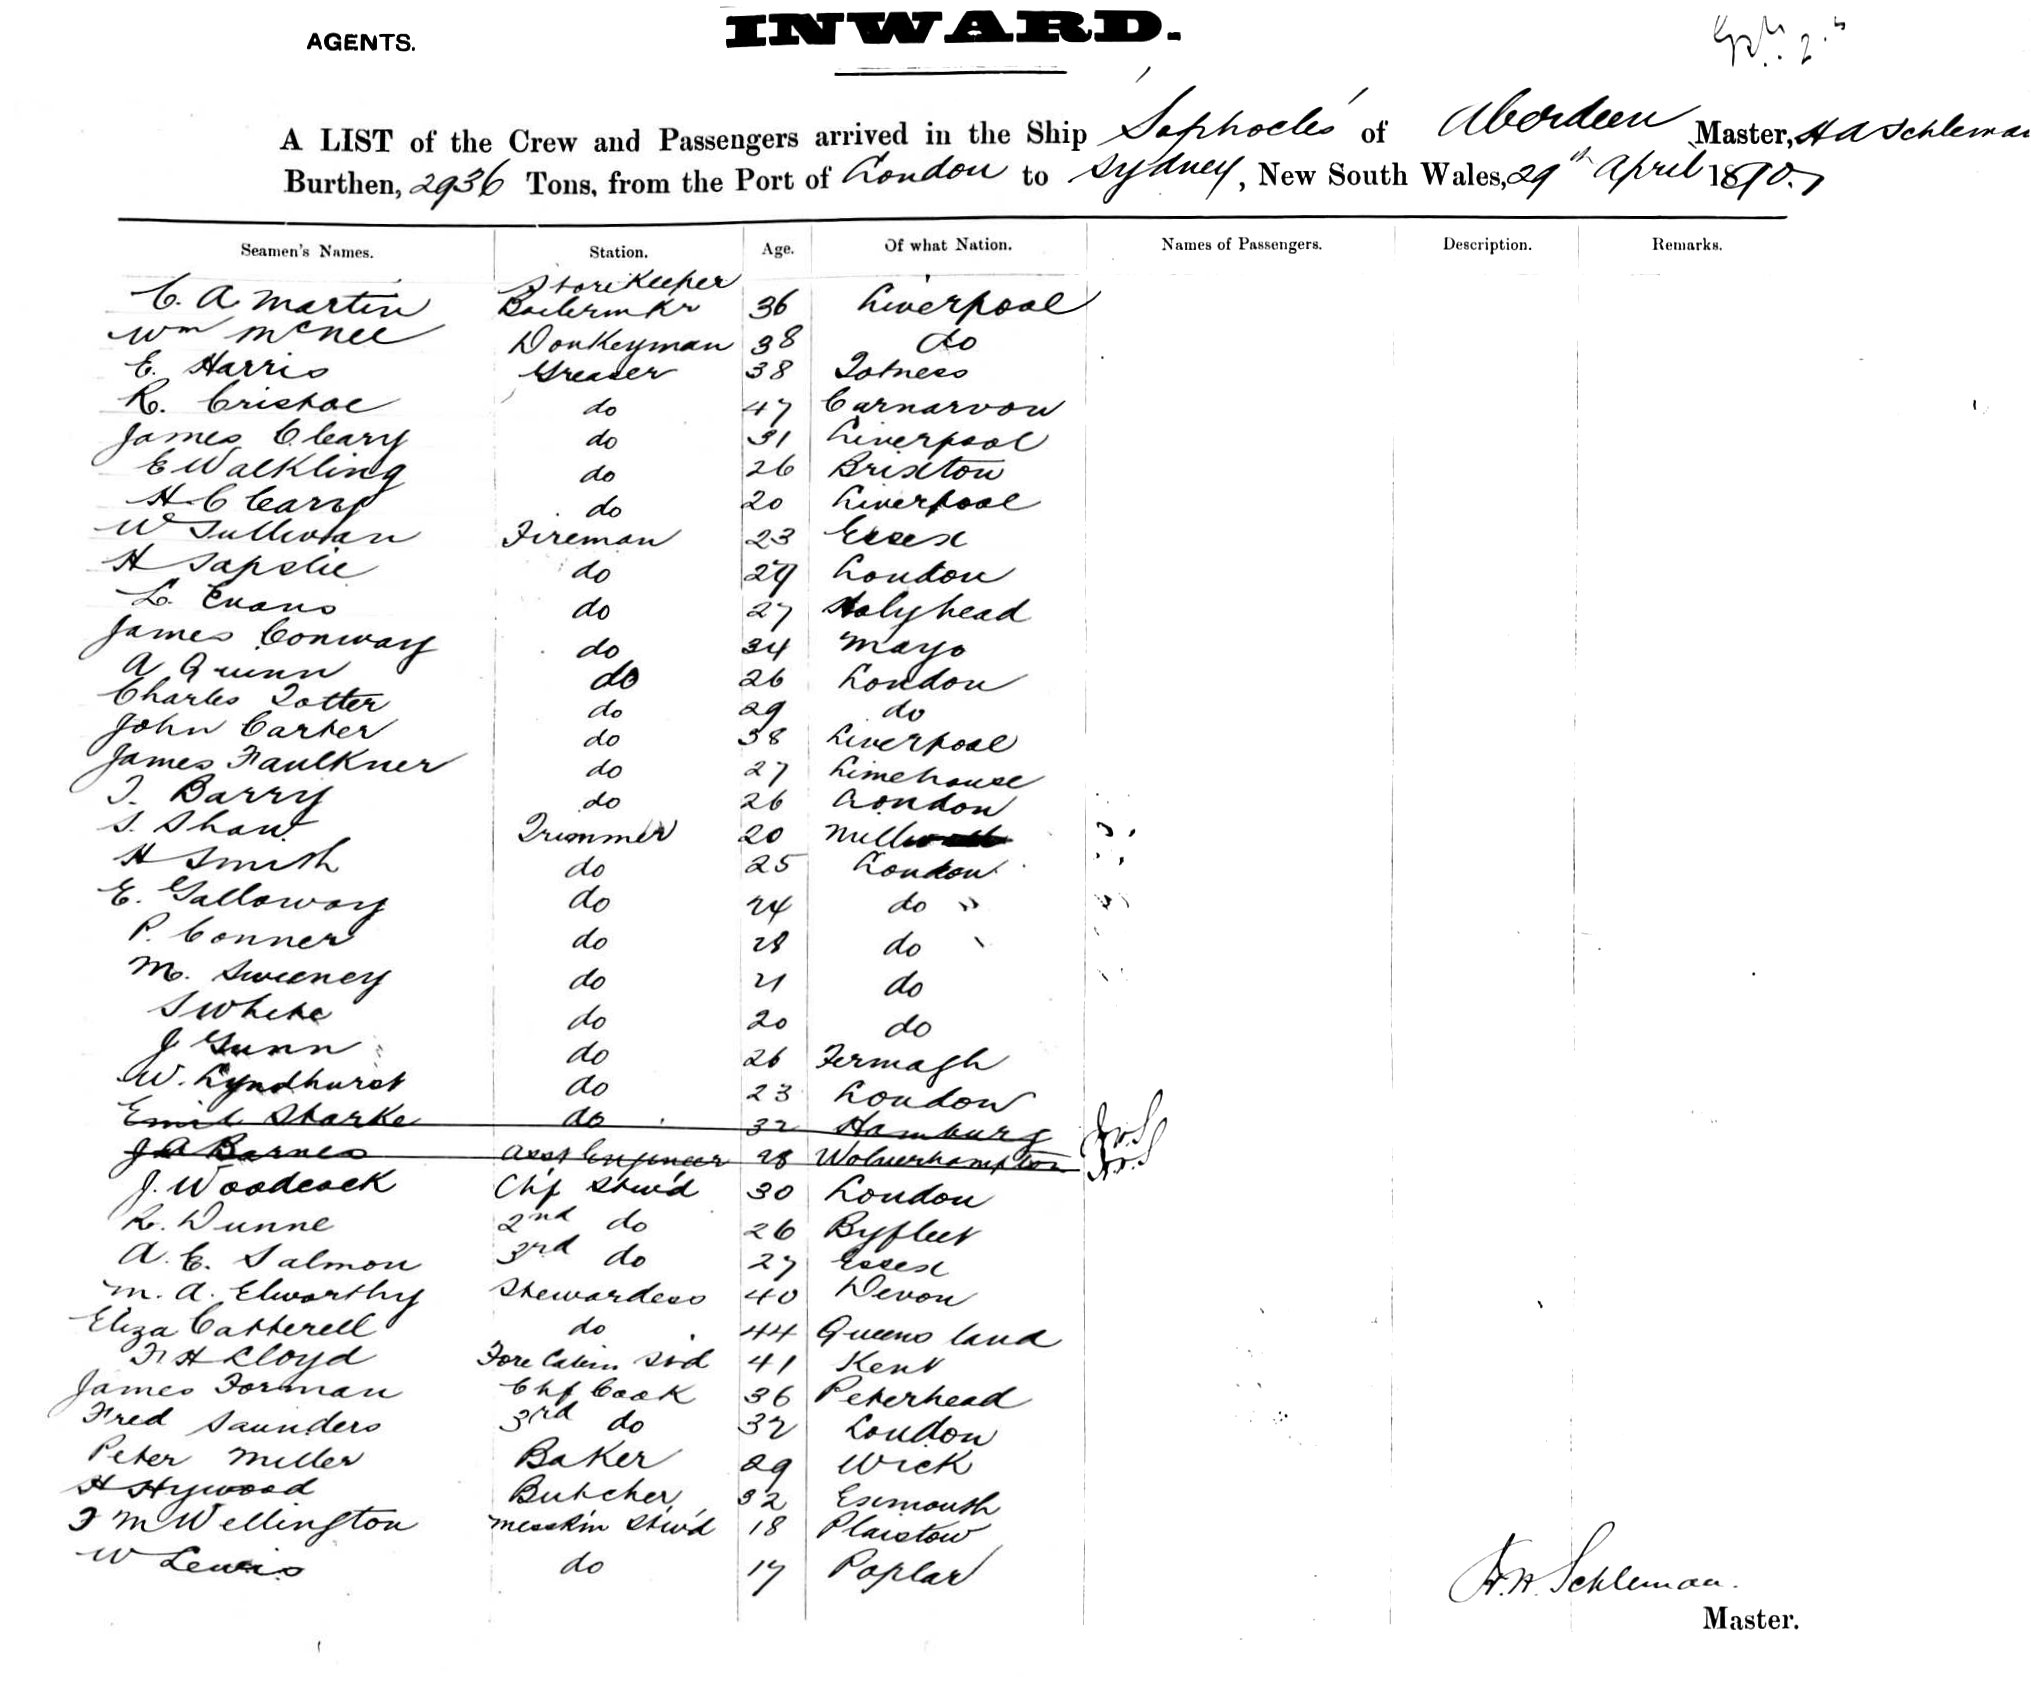 AGENTS.
INWARD.
A LIST of the Crew and Passengers arrived in the Ship 'Sophocles' of Aberdeen Master, H A Schleman
Burthen, 2936 Tons, from the Port of London to Sydney, New South Wales, 29th April 1890.
Seamen's Names. Station. Age. Of what Nation. Names of Passengers. Description. Remarks.
Storekeeper
C. A Martin Boilermkr 36 Liverpool
Wm McNee Donkeyman 38 do
E. Harris Greaser 38 Totness
R. do 47 Carnarvon
James Cleary do 31 Liverpool
E Walkling do 26 Brixton
H Cleary do 20 Liverpool
W Sullivan Fireman 23 Essex
H Tapslie do 29 London
L. Evans do 27 Holyhead
James Conway do 34 Mayo
A Quinn do 26 London
Charles Totter do 29 do
John Carter do 38 Liverpool
James Faulkner do 27 Limehouse
T. Barry do 26 London
S. Shaw Trimmer 20 Millwall
H Smith do 25 London
E. Galloway do 24 do
P. Conner do 28 do
M. Sweeney do 21 do
S White do 20 do
J Gunn do 26 Fermagh
W. Lyndhurst do 23 London
Emil Starke do 32 Hamburg
J A Barnes Asst Engineer 28 Wolverhampton
J. Woodcock Chf Stew'd 30 London
R. Dunne 2nd do 26 Byfleet
A. E. Salmon 3rd do 27 Essex
M. A. Elworthy Stewardess 40 Devon
Eliza Catterell do 44 Queens land
F H Lloyd Fore Cabin Std 41 Kent
James Forman Chf Cook 36 Peterhead
Fred Saunders 3rd do 32 London
Peter Miller Baker 29 Wick
H Hywood Butcher 32 Exmouth
F M Wellington Messrm Stew'd 18 Plaistow
W Lewis do 17 Poplar
H. A. Schleman.
Master.